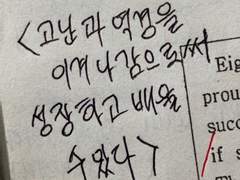 <고난과 역경을
이겨 나감으로써
성장하고 배울
수 있다>
Eig
prou
succ
if s